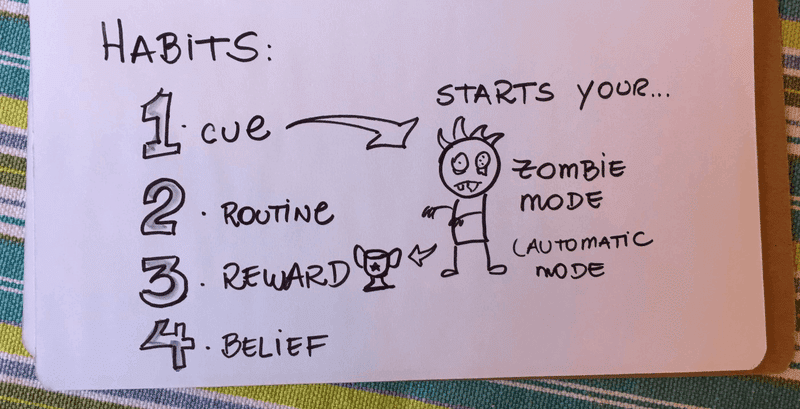 HABITS:
1. CUE
STARTS YOUR...
2. ROUTINE
ZOMBIE
MODE
3. REWARD
(AUTOMATIC
MODE
4. BELIEF